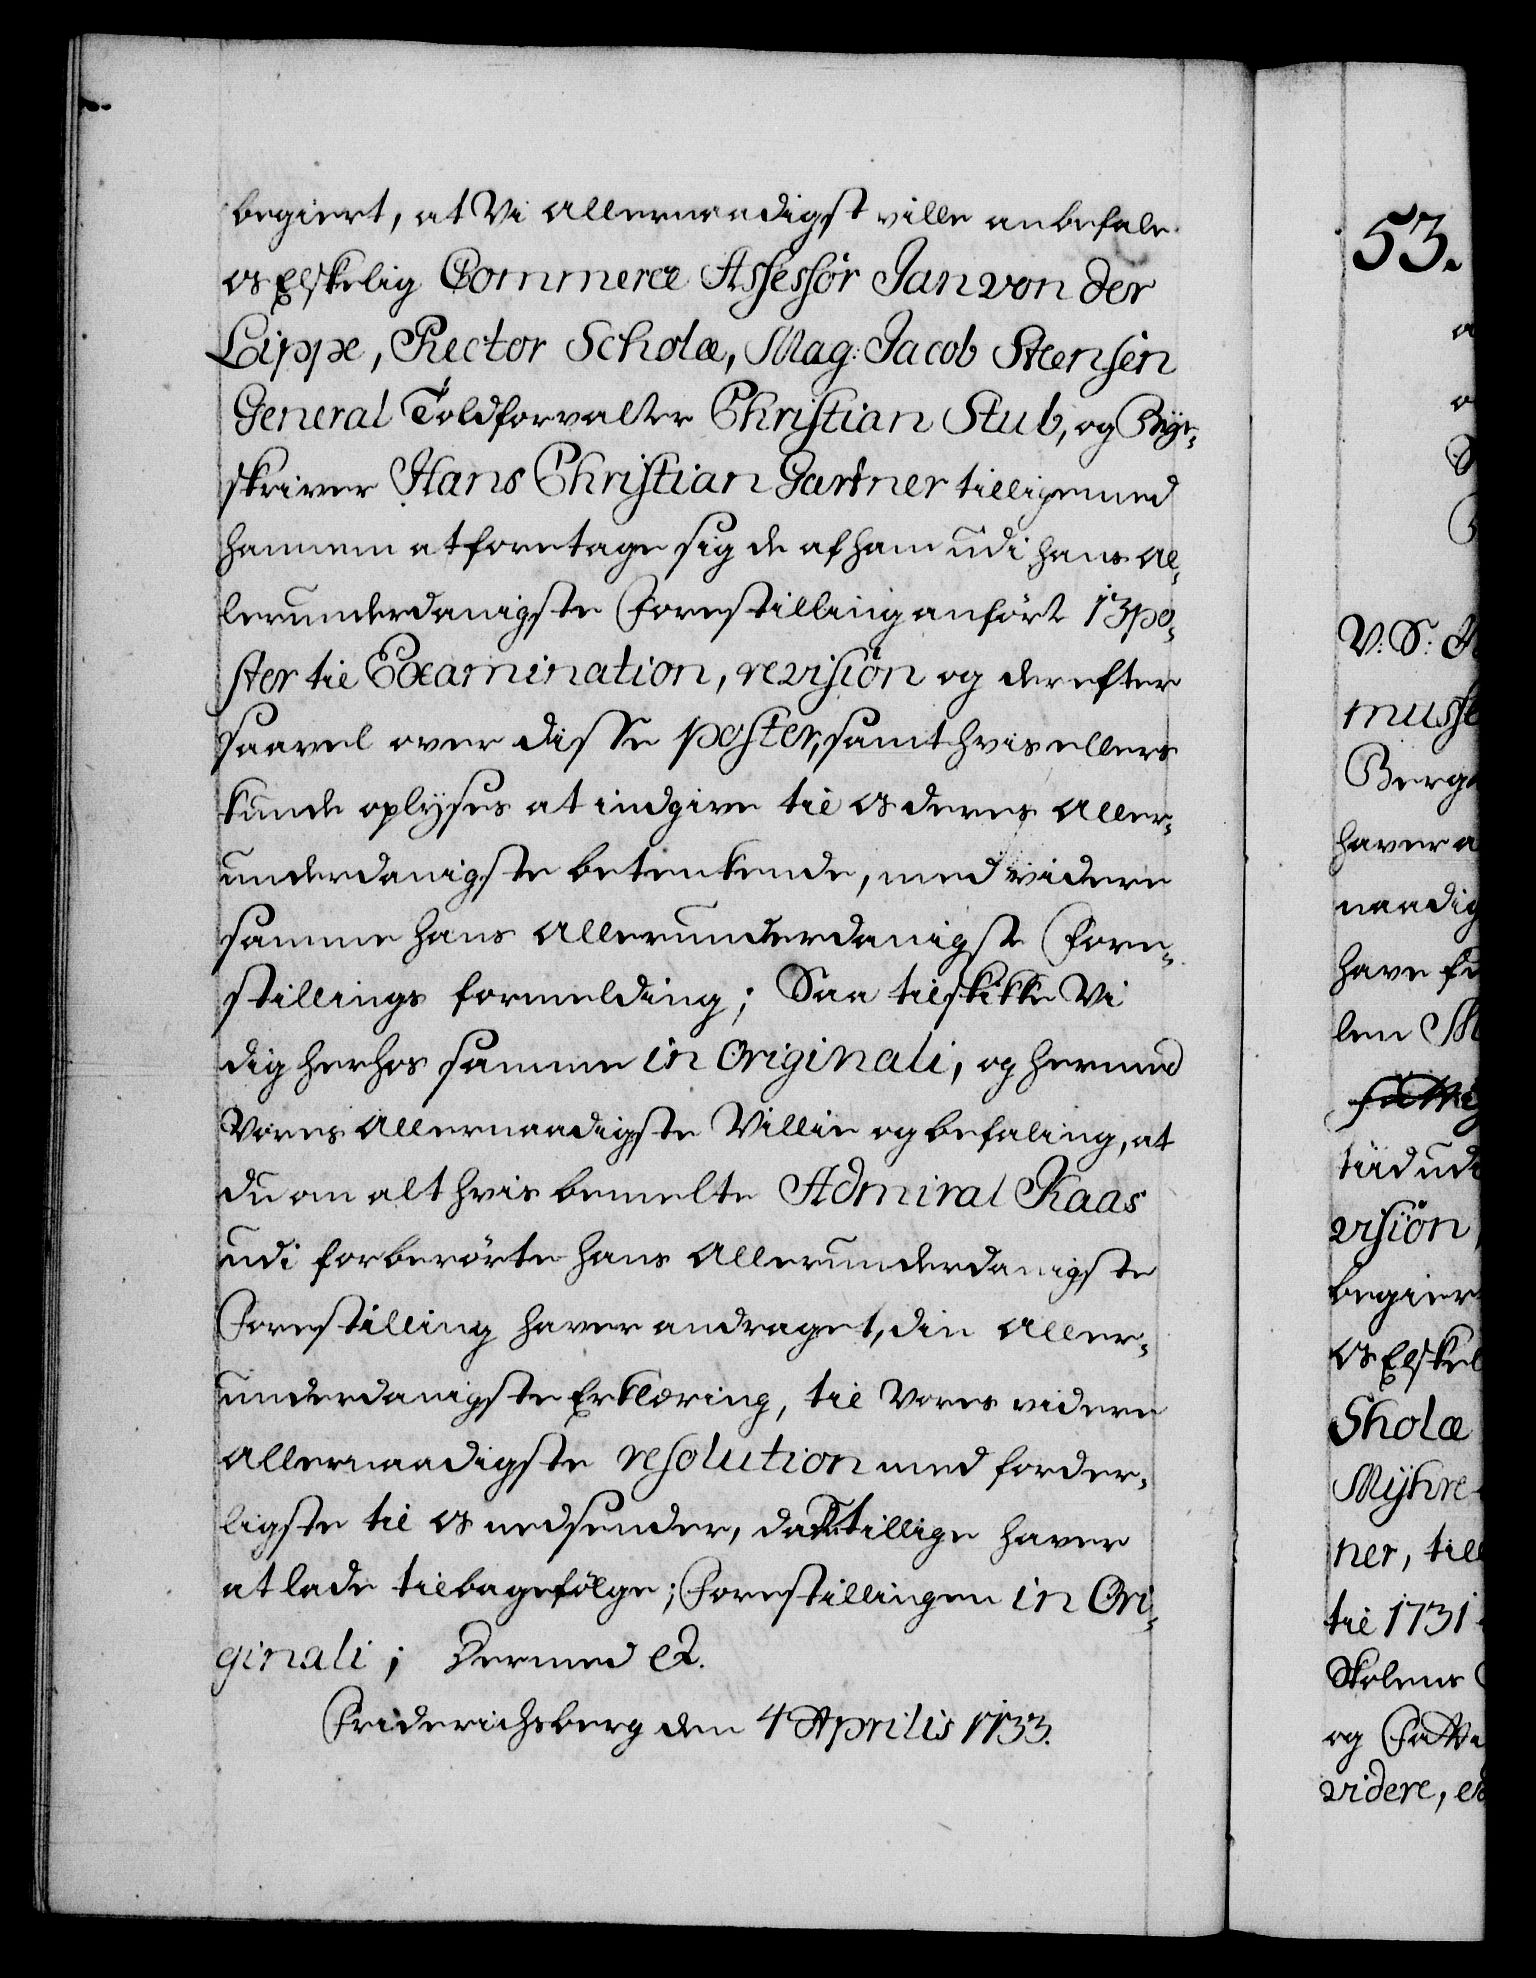 begiert, at Vi allernaadigst ville anbefale
os Elskelig Commerce Assessor Jan von der
Lippe, Rector Scholæ, Mag: Jacob Steensen
General Toldforvalter Christian Stub, og Bye-
skriver Hans Christian Gartner tilligemed
hannem at foretage sig de af ham udi hans al-
lerunderdanigste Forestilling anført 13 po-
ster til Examination, revision og derefter
saavel over disse poster, samt hvis ellers
kunde oplyses at indgive til os deres aller-
underdanigste betenkende, med videre
samme hans allerunderdanigste Fore-
stillings formelding; Saa tilskikke Vi
dig herhos samme in Originali, og hermed
Vores allernaadigste Villie og befaling, at
du om alt hvis bemelte Admiral Kaas
udi forberørte hans allerunderdanigste
Forestilling haver andraget, din aller-
underdanigste Erklæring, til Vores videre
allernaadigste resolution med forder-
ligste til os nedsender, da du tillige haver
at lade tilbagefølge; Forestillingen in Ori-
ginali; Dermed &.
Friderichsberg den 4 Aprilis 1733.
53.
V: S:
musse
Berge
haver a
naadig
have
len
tiid udi
vision
begier
os Elskel
Sholæ
Myhre
ner, till
til 1731
Skolens
og
videre,